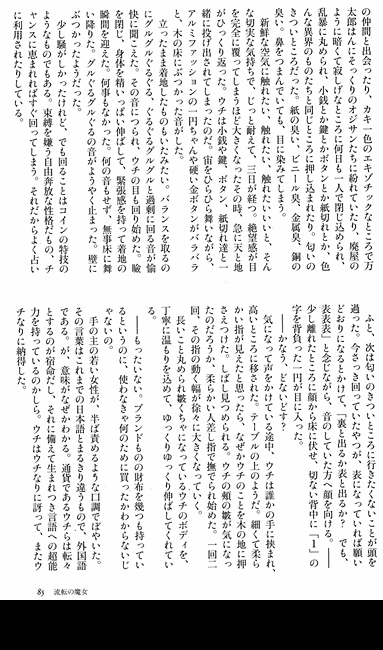 の仲間と出会ったり、カキ一色のエキゾチックなところで万
太郎はんにそっくりのオジサンたちに紛れていたり、廃屋の
ように暗くて寂しげなところに何日も一人で閉じ込められ、
乱暴に丸められ、小銭とか鍵とかボタンとか紙切れとか、色
んな異界のものたちと同じところに押し込まれたり。匂いの
きついところだった。紙の臭い、ビニール臭、金属臭、銅の
臭い。鼻をつまんでいても、目に染みてしまう。
新鮮な空気に触れたい、触れたい、触れたいいいと、そん
な切実な気持ちで、じっと耐えて、三日が経つ。絶望感が目
を完全に覆ってしまうほど大きくなったその時、急に天と地
がひっくり返った。ウチは小銭や鍵、ボタン、紙切れ達と一
緒に投げ出されてしまったのだ。宙をひらひら舞いながら、
アルミファッションの一円ちゃんや硬い金ボタンがバラバラ
と、木の床にぶつかった音がした。
立ったまま着地したものもいたみたい。バランスを取るの
にグルグルぐるぐる、ぐるぐるグルグルと過剰に回る音が愉
快に聞こえた。その音につられ、ウチの目も回り始めた。瞼
を閉じ、身体を精いっぱい伸ばして、緊張感を持って着地の
瞬間を迎えた。何事もなかった。何の音もせず、無事床に舞
い降りた。グルグルぐるグルの音がようやく止まった。壁に
ぶつかったようだった。
少し騒がしかったけれど、でも回ることはコインの特技の
ようなものでもある。束縛を嫌う自由奔放な性格だもの、チ
ャンスに恵まれればすぐ回ってしまう。それだからよく占い
に利用されたりしている。
ふと、次は匂いのきついところに行きたくないことが頭を
過った。今さっき回っていたやつが、表になっていれば願い
どおりになるとかけて、「裏と出るか表と出るか？　でも、
表表表」と念じながら、音のしていた方へ顔を向ける。――
少し離れたところに顔から床に伏せ、切ない背中に「１」の
字を背負った一円が目に入った。
――かなう、どないしたん？
気になって声をかけている途中、ウチは誰かの手に挟まれ、
高いところに移された。テーブルの上のようだ。細くて柔ら
かい指が見えたと思ったら、なぜかウチのことを木の地に押
さえつけた。しばし見つめられる。ウチの頬の皺が気になっ
たのだろうか、柔らかい人差し指で撫でられ始めた。一回二
回、その指の動く幅が徐々に大きくなっていく。
長いこと丸められ皺くちゃになっているウチのボディを、
丁寧に温もりを込めて、ゆっくりゆっくり伸ばしてくれてい
る。
――もったいない。ブランドものの財布を幾つも持ってい
るというのに、使わなきゃ何のために買ったかわからないじ
ゃないの。
手の主の若い女性が、半ば責めるような口調でぼやいた。
その言葉はこれまでの日本語とまるきり違うもので、外国語
である。が、意味がなぜかわかる。通貨であるウチらは転々
とするのが宿命だし、それに備えて生まれつき言語への超能
力を持っているのかしら。ウチはウチなりに訝って、またウ
チなりに納得した。
85　流転の魔女